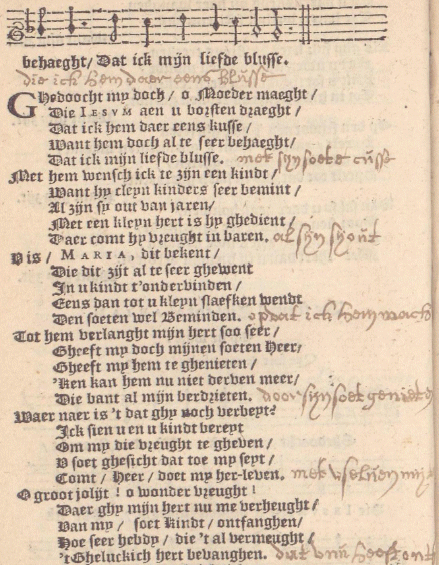 behaeght/ Dat ick mijn liefde blusse.
die ich hem daer eens blusse
Ghedoocht my doch / o Moeder maeght /
Die IESVM aen u borsten draeght /
Dat ick hem daer eens kusse /
Want hem doch al te seer behaeght /
Dat ick mijn liefde blusse. met syn soete cusse
Met hem wensch ick te zijn een kindt /
Want hy cleyn kinders seer bemint /
Al zijn sy out van jaren /
Met een kleyn hert is hy ghedient /
Daer comt hy vreught in baren. al syn
V is / MARIA, dit bekent /
Die dit zijt al te seer ghewent
In u kindt t'ondervinden /
Eens dan tot u kleyn slaefken wendt
Den soeten wel Beminden. opdat ich hem mach
Tot hem verlanght mijn hert soo seer /
Gheeft my doch mijnen soeten Heer /
Gheeft my hem te ghenieten /
'Ken kan hem nu niet derven meer /
Die bant al mijn verdrieten. door syn soet geniete
Waer naer is 't dat ghy noch verbeyt?
Ick sien u en u kindt bereyt
Om my die vreught te gheven /
V soet ghesicht dat toe my seyt /
Comt / Heer / doet my her-leven. met
O groot jolijt ! o wonder vreught !
Daer ghy mijn hert nu me verheught /
Van my / soet Kindt / ontfanghen /
Hoe seer hebdy / die 't al vermeught /
't Gheluckich hert bevanghen. dat